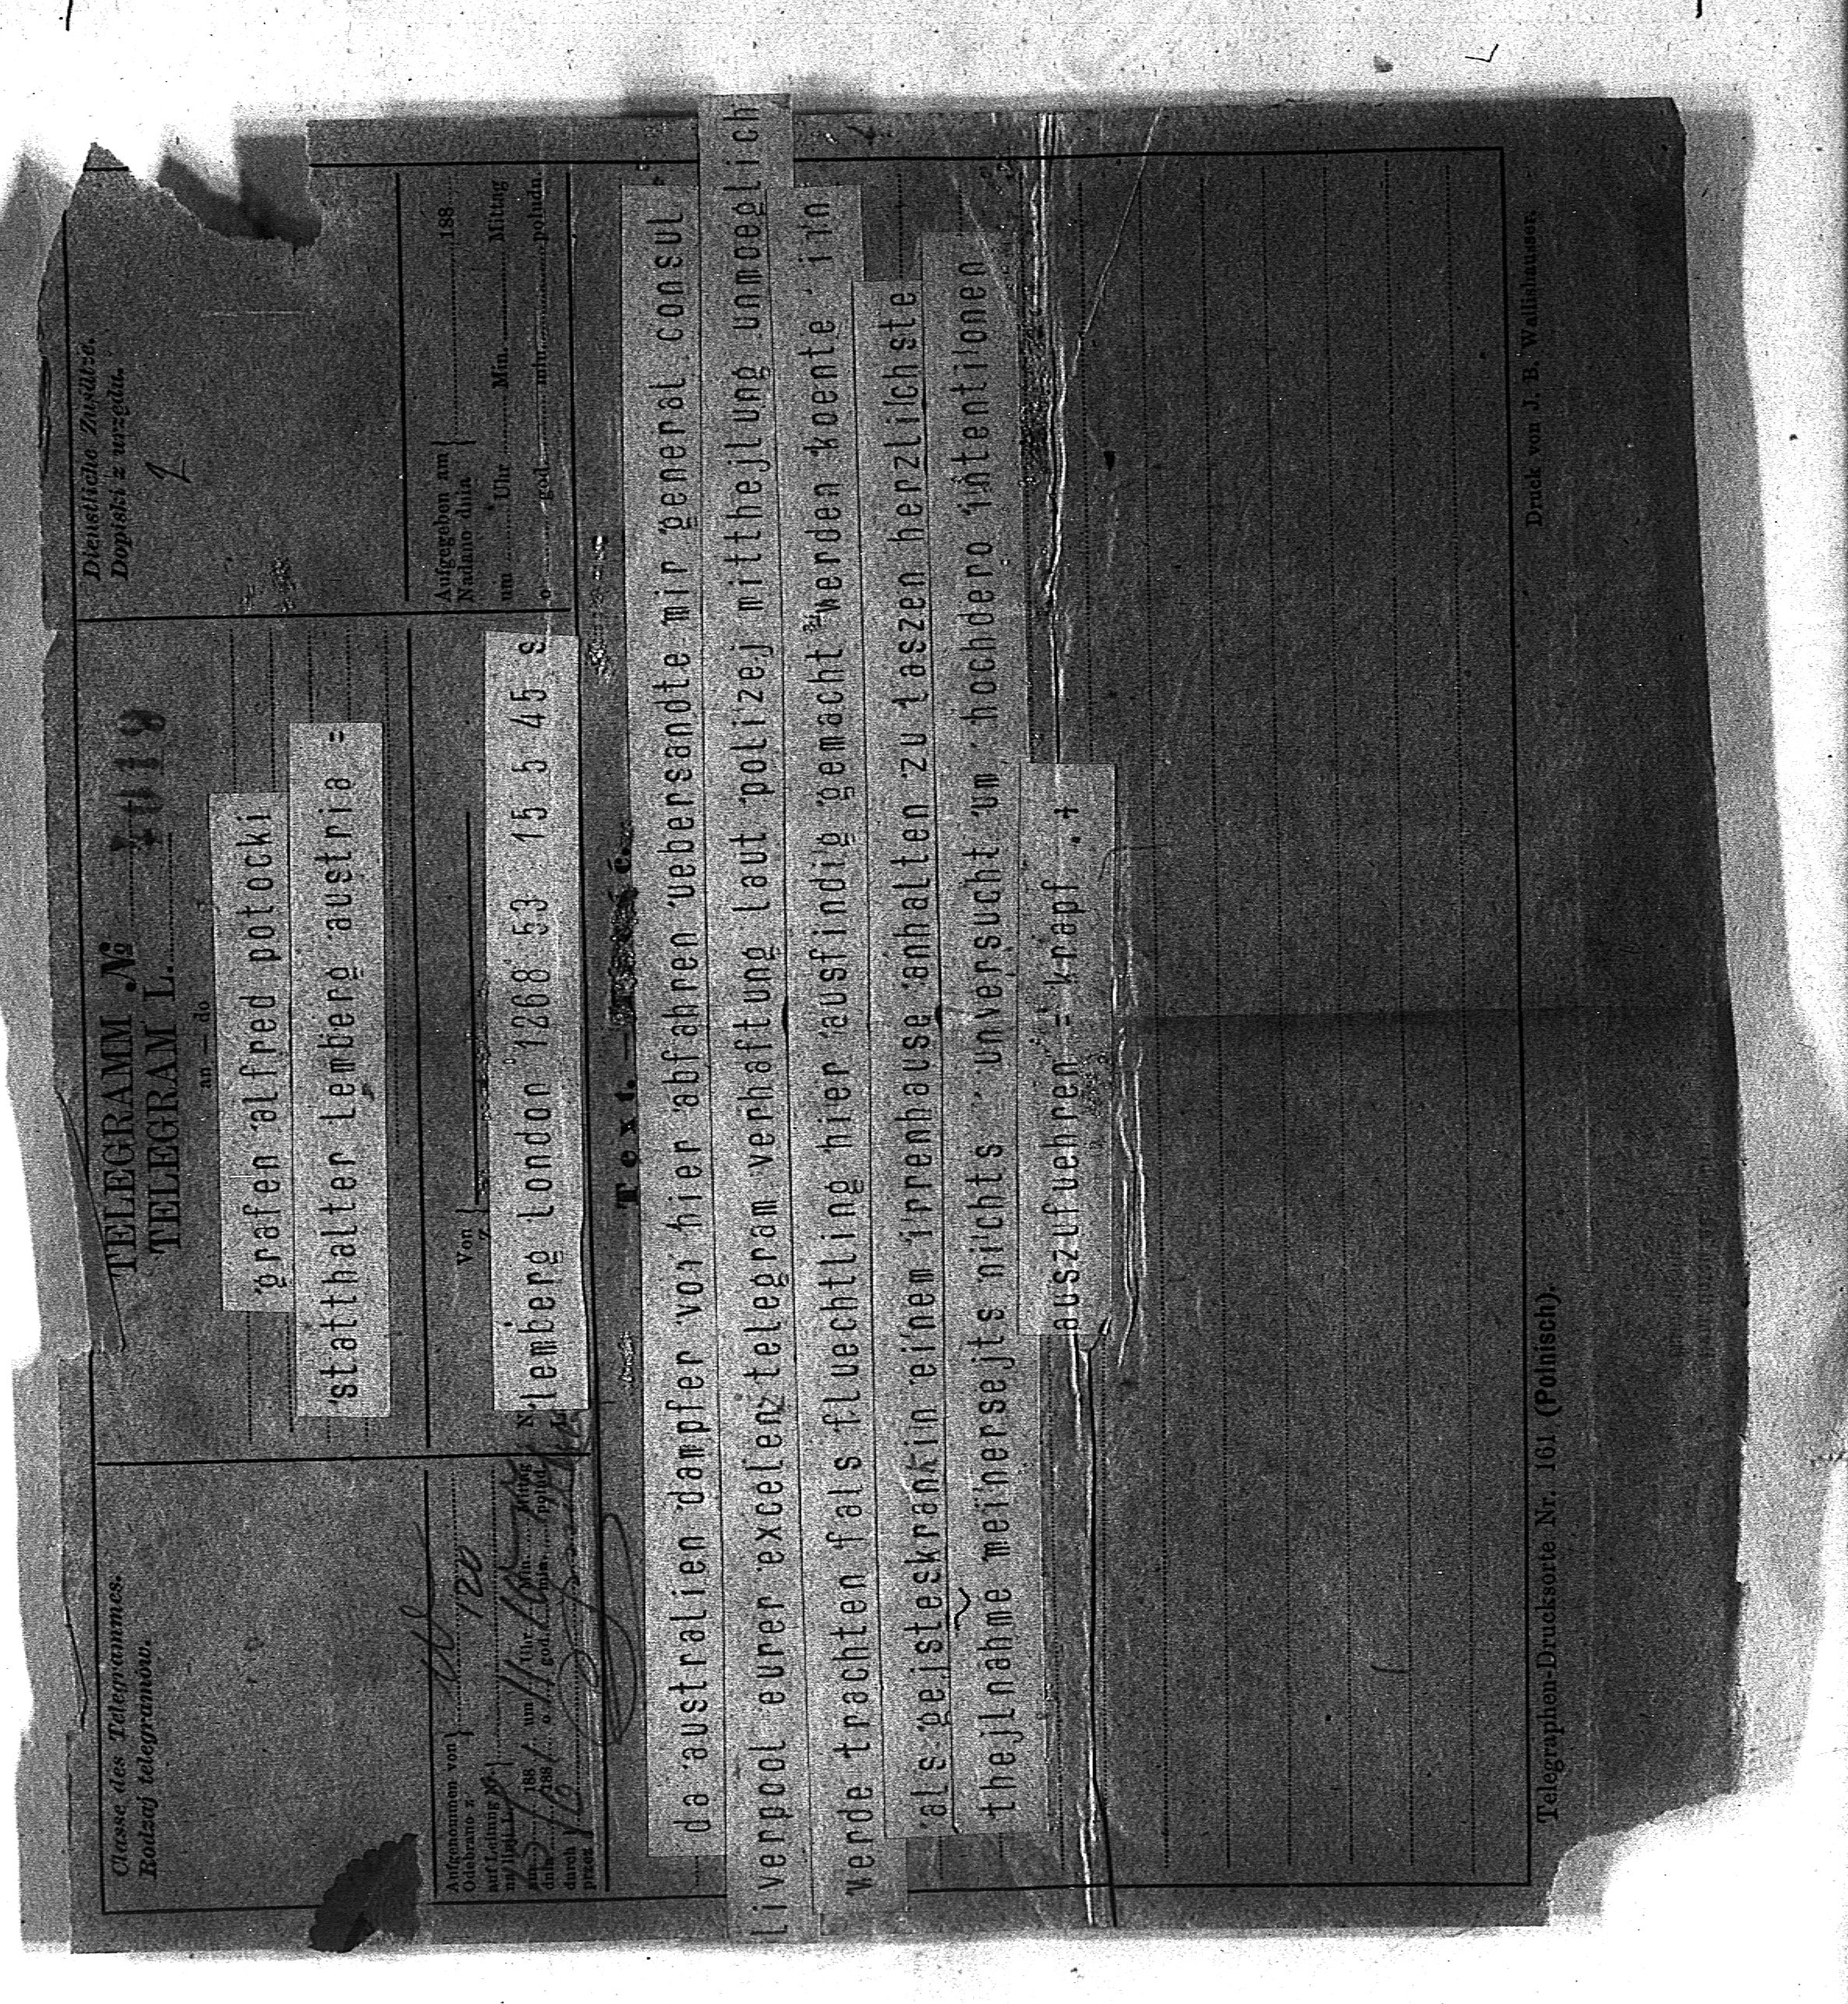 Classe des Telegrammes.
Rodzaj telegramów.
TELEGRAMM №
TELEGRAM L.
an — do
grafen alfred potocki
statthalter lemberg austria =
Dienstliche Zusätze.
Dopiski z urzędu.
Aufgenommen von
Odebrano z
120
auf Leitung №
am 188 um Uhr Min. Mittag
dnia 188 o god. min. połud.
durch
przez
Von
z
lemberg london 1268 53 15 5 45 s
Aufgegeben am 188
Nadano dnia
um Uhr Min. Mittag
o god. min. południ
Text. —
da australien dampfer von hier abfahren uebersandte mir general consul
liverpool eurer excelenz telegram verhaftung laut polizej mitthejlung unmoeglich
werde trachten fals fluechtling hier ausfindig gemacht werden koente inn
als gejsteskrankin einem irrenhause anhalten zu laszen herzlichste
thejlnahme meinersejts nichts unversucht um hochdero intentionen
auszufuehren = krapf . +
Telegraphen-Drucksorte Nr. 161 (Polnisch).
Druck von J. B. Wallishausser.